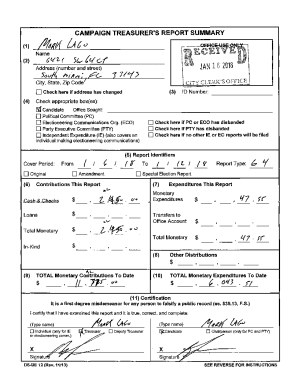 CAMPAIGN TREASURER'S REPORT SUMMARY
(1) MARK LAGO
Name
OFFICE USE ONLY
RECEIVED
(2) 6421 SW
Address (number and street)
South Miami, FL 33143
City, State, Zip Code
JAN 16 2018
CITY CLERK'S OFFICE
Check here if address has changed
(3) ID Number:
(4) Check appropriate box(es):
Candidate Office Sought:
Political Committee (PC)
Electioneering Communications Org. (ECO)
Party Executive Committee (PTY)
Independent Expenditure (IE) (also covers an
individual making electioneering communications)
Check here if PC or ECO has disbanded
Check here if PTY has disbanded
Check here if no other IE or EC reports will be filed
(5) Report Identifiers
Cover Period: From 1 / 6 / 18 To 1 / 12 / 18 Report Type: G4
Original Amendment Special Election Report
(6) Contributions This Report
Cash & Checks $
Loans $
Total Monetary $
In-Kind $
(7) Expenditures This Report
Monetary
Expenditures $ 47.55
Transfers to
Office Account $
Total Monetary $ 47.55
(8) Other Distributions
$
(9) TOTAL Monetary Contributions To Date
$
(10) TOTAL Monetary Expenditures To Date
$ 6,043.51
(11) Certification
It is a first degree misdemeanor for any person to falsify a public record (ss. 839.13, F.S.)
I certify that I have examined this report and it is true, correct, and complete:
(Type name) MARK LAGO
Individual (only for IE or electioneering comm.) Treasurer Deputy Treasurer
X
Signature
(Type name) MARK LAGO
Candidate Chairperson (only for PC and PTY)
X
Signature
DS-DE 12 (Rev. 11/13)
SEE REVERSE FOR INSTRUCTIONS